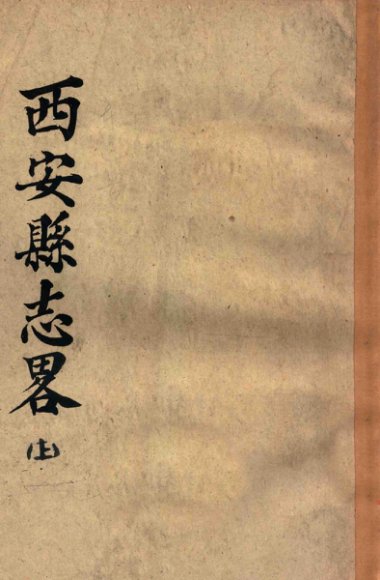 西安縣志畧
(上)